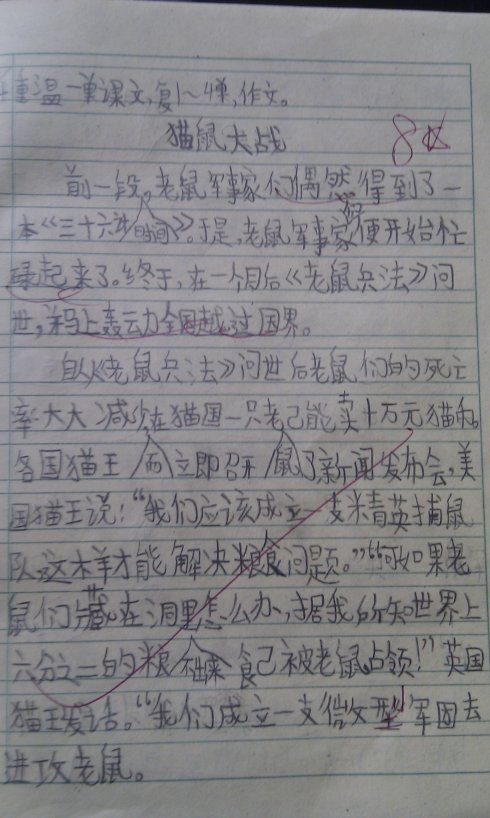 重温一单课文,复1~4单,作文。
猫鼠大战
8
前一段。老鼠军事家们偶然得到了一
本《三十六计》。于是,老鼠军事家便开始忙
碌起来了。终于,在一个月后《老鼠兵法》问
世,马上轰动全国越过国界。
自从《老鼠兵法》问世后老鼠们的死亡
率大大减少在猫国一只老鼠已能卖十万元猫币。
各国猫王而立即召开了新闻发布会,美
国猫王说:“我们应该成立一支米青英捕鼠
队这样才能解决粮食问题。”“可如果老
鼠们藏在洞里怎么办,据我所知世界上
六分之二的粮食已被老鼠占领!”英国
猫王发话。“我们成立一支微型军团去
进攻老鼠。